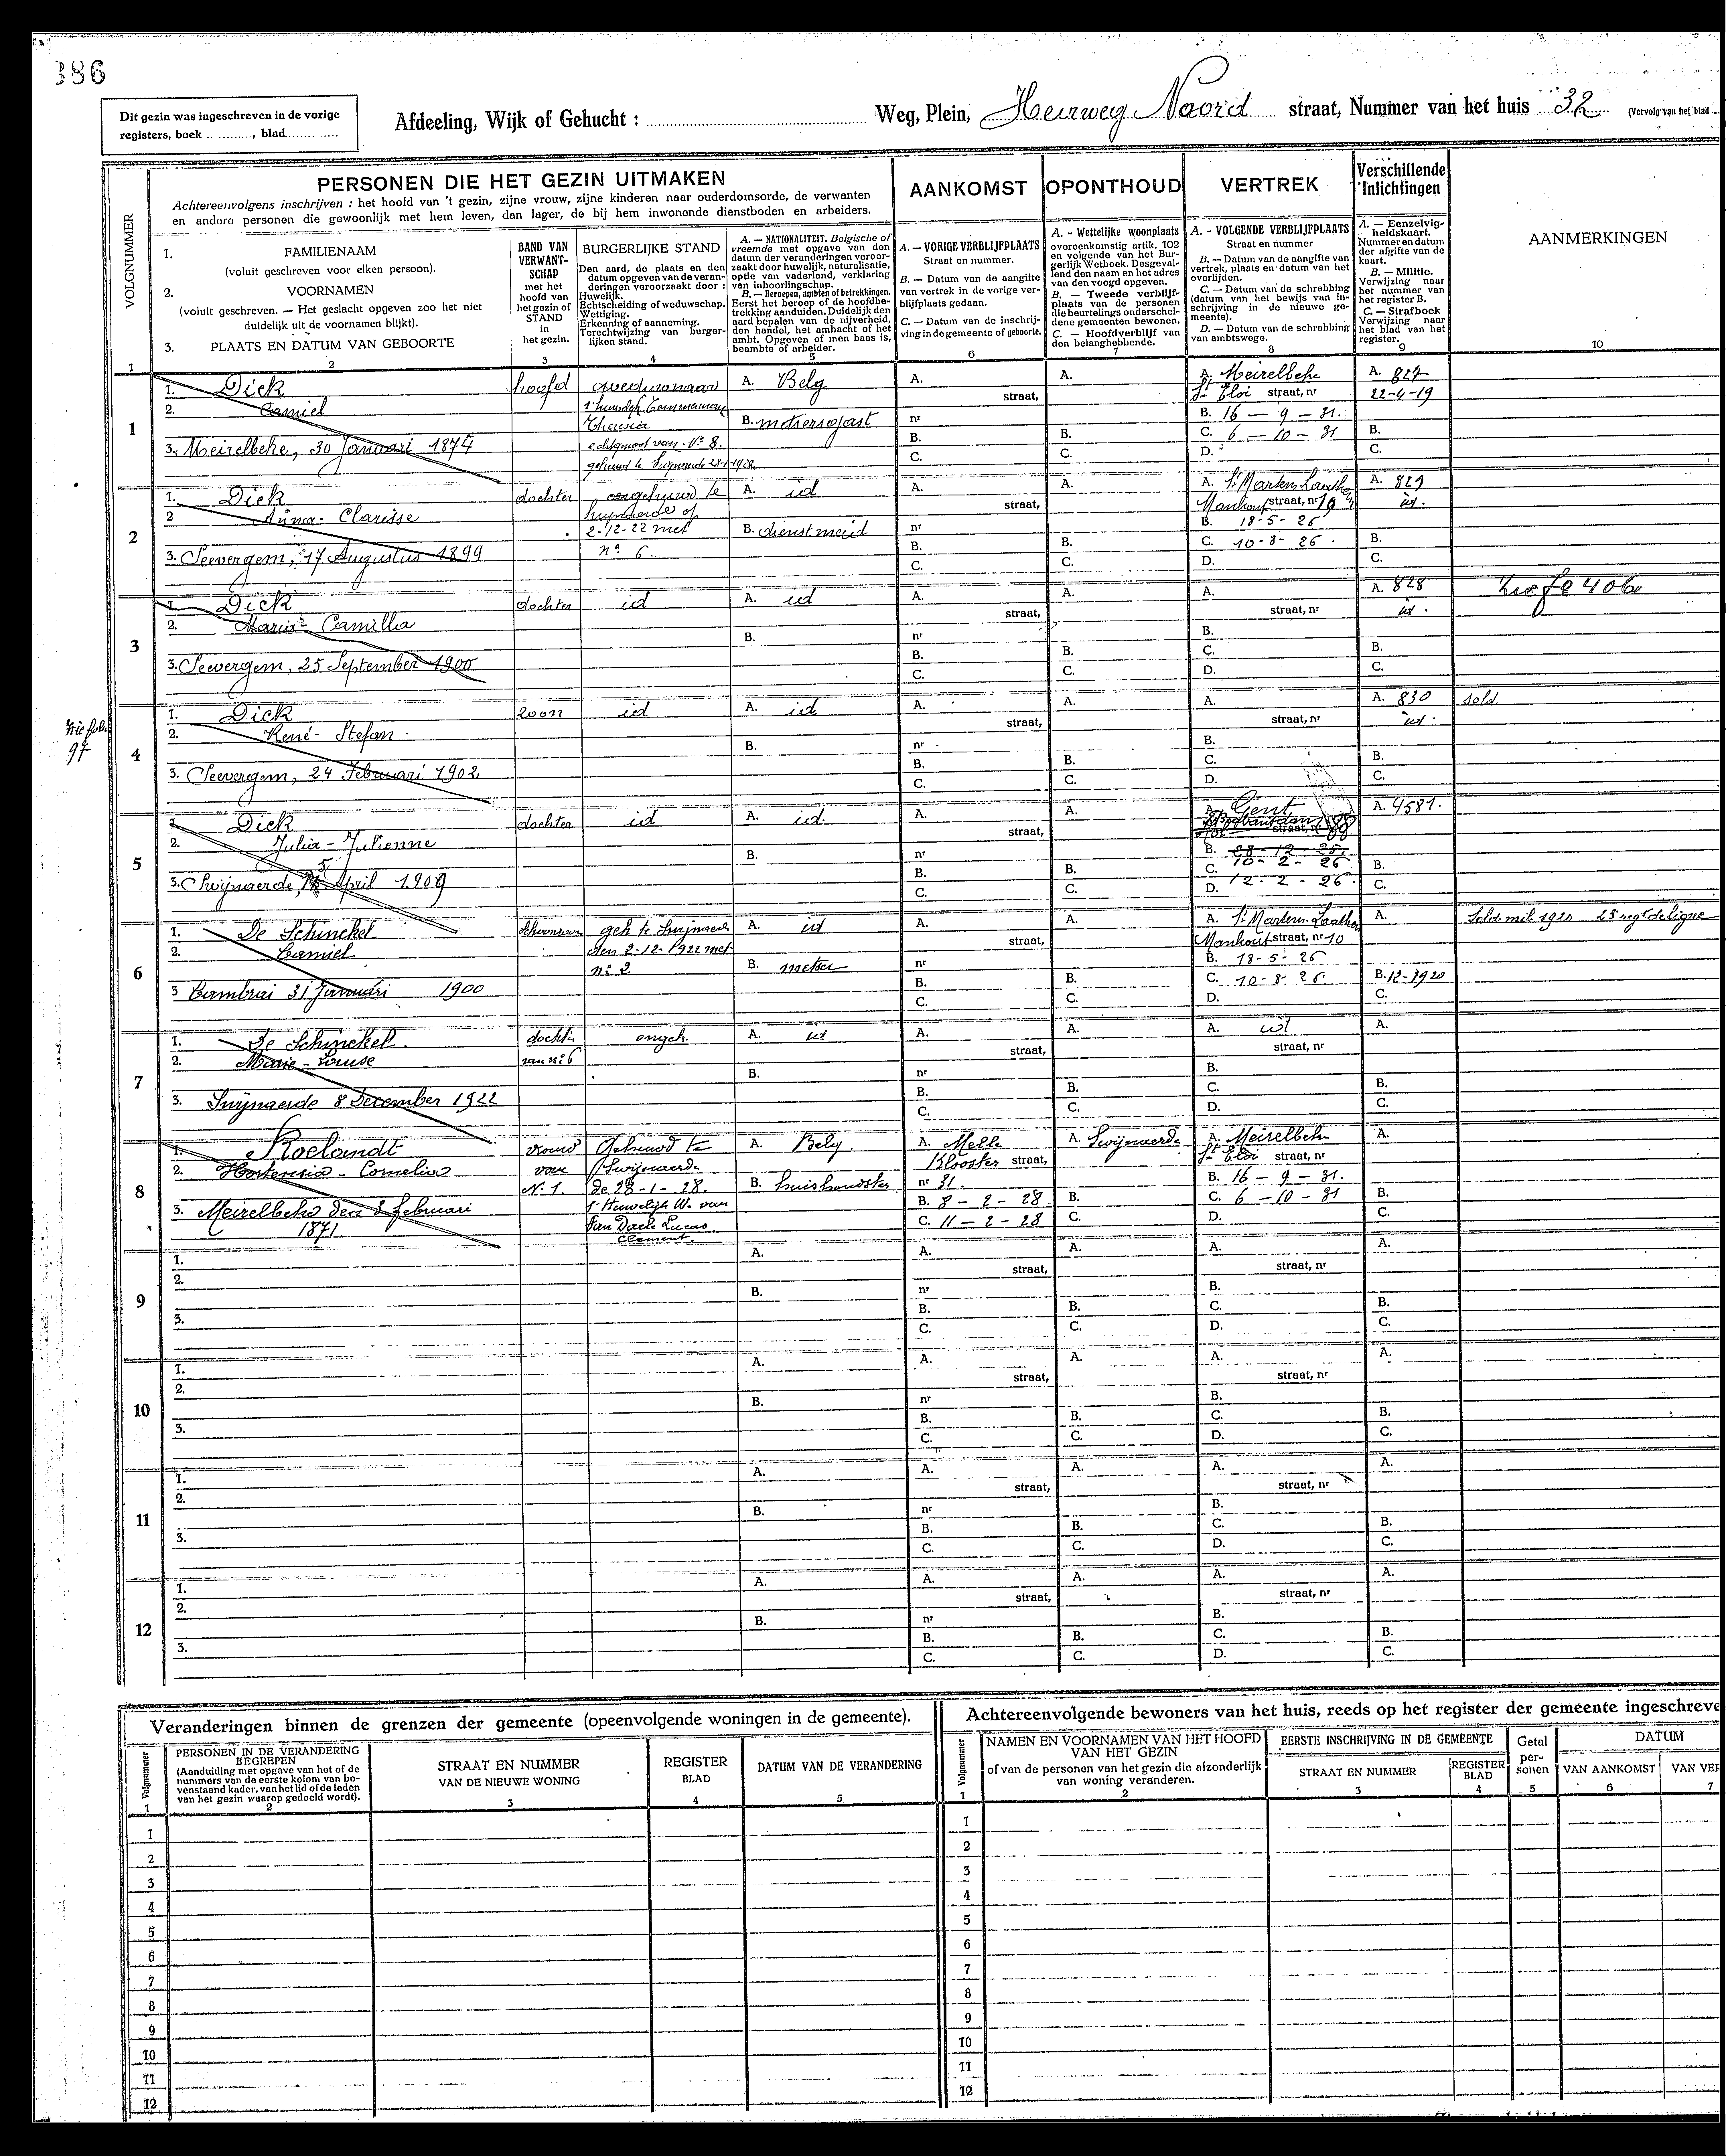 386
Dit gezin was ingeschreven in de vorige
registers, boek .........., blad............
Afdeeling, Wijk of Gehucht : ........ Weg, Plein, Heirweg Noord straat, Nummer van het huis 32 (Vervolg van het blad
VOLGNUMMER
PERSONEN DIE HET GEZIN UITMAKEN
Achtereenvolgens inschrijven : het hoofd van 't gezin, zijne vrouw, zijne kinderen naar ouderdomsorde, de verwanten
en andere personen die gewoonlijk met hem leven, dan lager, de bij hem inwonende dienstboden en arbeiders.
1. FAMILIENAAM
(voluit geschreven voor elken persoon).
2. VOORNAMEN
(voluit geschreven. — Het geslacht opgeven zoo het niet
duidelijk uit de voornamen blijkt).
3. PLAATS EN DATUM VAN GEBOORTE
BAND VAN
VERWANT-
SCHAP
met het
hoofd van
het gezin of
STAND
in
het gezin.
BURGERLIJKE STAND
Den aard, de plaats en den
datum opgeven van de veran-
deringen veroorzaakt door :
Huwelijk.
Echtscheiding of weduwschap.
Wettiging.
Erkenning of aanneming.
Terechtwijzing van burger-
lijken stand.
A. — NATIONALITEIT. Belgische of
vreemde met opgave van den
datum der veranderingen veroor-
zaakt door huwelijk, naturalisatie,
optie van vaderland, verklaring
van inboorlingschap.
B. — Beroepen, ambten of betrekkingen.
Eerst het beroep of de hoofdbe-
trekking aanduiden. Duidelijk den
aard bepalen van de nijverheid,
den handel, het ambacht of het
ambt. Opgeven of men baas is,
beambte of arbeider.
AANKOMST
A. — VORIGE VERBLIJFPLAATS
Straat en nummer.
B. — Datum van de aangifte
van vertrek in de vorige ver-
blijfplaats gedaan.
C. — Datum van de inschrij-
ving in de gemeente of geboorte.
OPONTHOUD
A. - Wettelijke woonplaats
overeenkomstig artik. 102
en volgende van het Bur-
gerlijk Wetboek. Desgeval-
lend den naam en het adres
van den voogd opgeven.
B. — Tweede verblijf-
plaats van de personen
die beurtelings onderschei-
dene gemeenten bewonen.
C. — Hoofdverblijf van
den belanghebbende.
VERTREK
A. - VOLGENDE VERBLIJFPLAATS
Straat en nummer
B. — Datum van de aangifte van
vertrek, plaats en datum van het
overlijden.
C. — Datum van de schrabbing
(datum van het bewijs van in-
schrijving in de nieuwe ge-
meente).
D. — Datum van de schrabbing
van ambtswege.
Verschillende
Inlichtingen
A. — Eenzelvig-
heidskaart.
Nummer en datum
der afgifte van de
kaart.
B. — Militie.
Verwijzing naar
het nummer van
het register B.
C. — Strafboek
Verwijzing naar
het blad van het
register.
AANMERKINGEN
1 2 3 4 5 6 7 8 9 10
1
1. Dick hoofd weduwnaar A. Belg A. straat, A. A. Meirelbeke A. 827
2. Camiel 1e huwelijk Theresia B. nr St Eloi straat, nr 22-4-19
B. 16 - 9 - 31.
3. Meirelbeke, 30 Januari 1874 echtgenoot van Nr 8. B. B. C. 6 - 10 - 31 B.
C. C. D. C.
2
1. Dick dochter ongehuwd te A. id A. straat, A. A. St Martens Laathem A. 829
2 Anna - Clarisse Manhout straat, nr 10 id.
2-12-22 met B. dienstmeid nr B. 18-5-26
3. Seevergem, 17 Augustus 1899 no 6. B. B. C. 10-8-26. B.
C. C. D. C.
3
1. Dick dochter id A. id A. straat, A. A. straat, nr A. 828 Zie fo 406
2. Maria - Camilla B. nr B. id.
3. Seevergem, 25 September 1900 B. B. C. B.
C. C. D. C.
4
97
1. Dick zoon id A. id A. straat, A. A. straat, nr A. 830 sold.
2. René - Stefan B. nr B. id.
3. Seevergem, 24 Februari 1902 B. B. C. B.
C. C. D. C.
5
1. Dick dochter id A. id. A. straat, A. A. Gent A. 4581.
2. Julia - Julienne straat, nr 88
B. nr B. 28-12-25.
3. Swijnaerde, 5 April 1909 B. B. C. 10-2-26 B.
C. C. D. 12-2-26. C.
6
1. De Schinckel schoonzoon geh te Swijnaerde A. id A. straat, A. A. St Martens-Laathem A. Sold. mil 1920 25 regt de ligne
2. Camiel den 2-12-1922 met Manhout straat, nr 10
no 2 B. metser nr B. 18-5-26
3 Cambrai 31 Januari 1900 B. B. C. 10-8-26. B. 12-1920
C. C. D. C.
7
1. De Schinckel. dochter ongeh. A. id A. straat, A. A. id straat, nr A.
2. Marie - Louise van no 6 B. nr B.
3. Swijnaerde 8 December 1922 B. B. C. B.
C. C. D. C.
8
1. Roelandt vrouw Gehuwd te A. Belg. A. Melle A. Swijnaerde A. Meirelbeke A.
2. Hortensia - Cornelia van Swijnaerde Klooster straat, St Eloi straat, nr
No 1. de 28-1-28. B. huishoudster nr 31. B. 16 - 9 - 31.
3. Meirelbeke den 8 februari 1e Huwelijk W. van B. 8 - 2 - 28 B. C. 6 - 10 - 31 B.
1871. Van Daele Lucas C. 11 - 2 - 28 C. D. C.
Clement.
9
1. A. A. straat, A. A. straat, nr A.
2. B. nr B.
3. B. B. C. B.
C. C. D. C.
10
1. A. A. straat, A. A. straat, nr A.
2. B. nr B.
3. B. B. C. B.
C. C. D. C.
11
1. A. A. straat, A. A. straat, nr A.
2. B. nr B.
3. B. B. C. B.
C. C. D. C.
12
1. A. A. straat, A. A. straat, nr A.
2. B. nr B.
3. B. B. C. B.
C. C. D. C.
Veranderingen binnen de grenzen der gemeente (opeenvolgende woningen in de gemeente).
Volgnummer
PERSONEN IN DE VERANDERING
BEGREPEN
(Aanduiding met opgave van het of de
nummers van de eerste kolom van bo-
venstaand kader, van het lid of de leden
van het gezin waarop gedoeld wordt).
STRAAT EN NUMMER
VAN DE NIEUWE WONING
REGISTER
BLAD
DATUM VAN DE VERANDERING
1 2 3 4 5
1
2
3
4
5
6
7
8
9
10
11
12
Achtereenvolgende bewoners van het huis, reeds op het register der gemeente ingeschreve
Volgnummer
NAMEN EN VOORNAMEN VAN HET HOOFD
VAN HET GEZIN
of van de personen van het gezin die afzonderlijk
van woning veranderen.
EERSTE INSCHRIJVING IN DE GEMEENTE
STRAAT EN NUMMER
REGISTER
BLAD
Getal
per-
sonen
DATUM
VAN AANKOMST
VAN VER
1 2 3 4 5 6 7
1
2
3
4
5
6
7
8
9
10
11
12